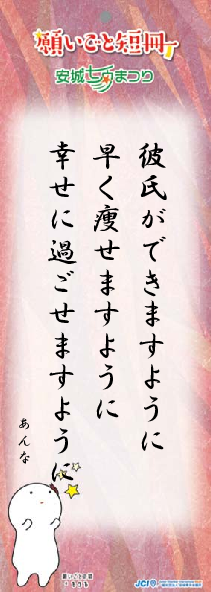 願いごと短冊
安城七夕まつり
彼氏ができますように
早く痩せますように
幸せに過ごせますように
あんな
願いごと短冊
JCI